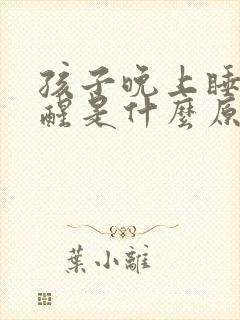 孩子晚上睡
醒是什麼原
葉小離